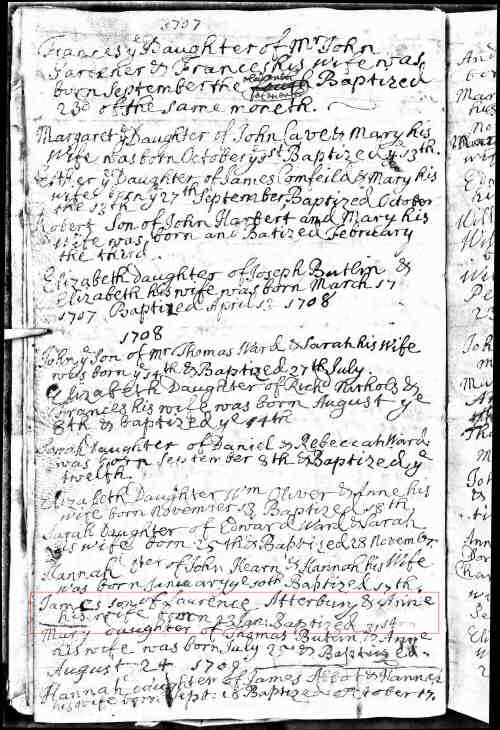 1707
Frances ye Daughter of Mr John
Gardener & Frances his wife was
born September the eleventh Baptized
23d of the same moneth.
Margaret ye Daughter of John Cave & Mary his
wife was born October ye 31st Baptized ye 13th.
Esther ye Daughter of James Comfeild & Mary his
wife born ye 27th September Baptized October
the 13th
Robert Son of John Harbert and Mary his
wife was born and Batized February
the third.
Elizabeth Daughter of Joseph Butlin &
Elizabeth his wife was born March 17
1707 Baptized April 13 1708
1708
John ye Son of Mr Thomas Ward & Sarah his wife
was born ye 14th & Baptized 27th July.
Elizabeth Daughter of Richd Nichols &
Frances his wife was born August ye
8th & Baptized ye 11th
Sarah Daughter of Daniel & Rebeccah Ward
was born September 8th & Baptized ye
twelth.
Elizabeth Daughter Wm Oliver & Anne his
wife born November 13 Baptized 18th
Sarah Daughter of Edward Ward & Sarah
his wife born 25th & Baptised 28 November
Hannah ter of John Hearn & Hannah his wife
was born January ye 10th Baptized 17th.
James son of Laurence Atterbury & Anne
his wife born 23 Jan: Baptized 31st
Mary daughter of Thomas Butlin & Anne
his wife was born July 22d & Baptized
August 24 1709
Hannah daughter of James Abbot & Hannah
his wife born Sept: 18 Baptized October 17.